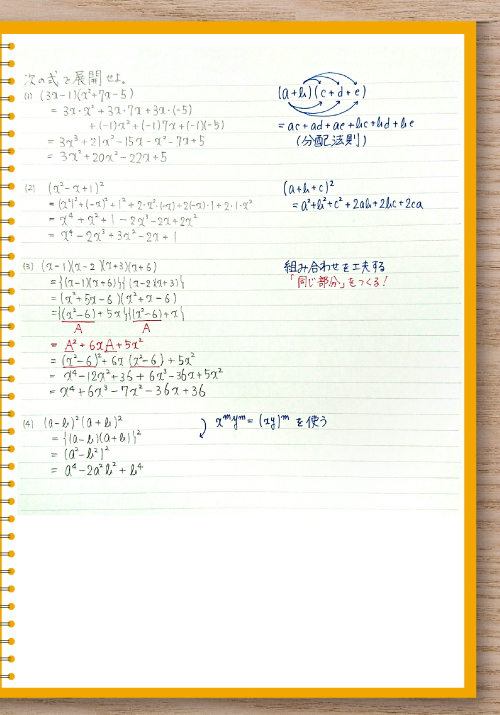 次の式を展開せよ。
(1) (3x-1)(x²+7x-5)
= 3x·x²+3x·7x+3x·(-5)
+(-1)x²+(-1)7x+(-1)(-5)
= 3x³+21x²-15x-x²-7x+5
= 3x³+20x²-22x+5
(a+b)(c+d+e)
= ac+ad+ae+bc+bd+be
(分配法則)
(2) (x²-x+1)²
= (x²)²+(-x)²+1²+2·x²·(-x)+2(-x)·1+2·1·x²
= x⁴+x²+1-2x³-2x+2x²
= x⁴-2x³+3x²-2x+1
(a+b+c)²
= a²+b²+c²+2ab+2bc+2ca
(3) (x-1)(x-2)(x+3)(x+6)
= {(x-1)(x+6)}{(x-2)(x+3)}
= (x²+5x-6)(x²+x-6)
= {(x²-6)+5x}{(x²-6)+x}
A A
= A²+6xA+5x²
= (x²-6)²+6x(x²-6)+5x²
= x⁴-12x²+36+6x³-36x+5x²
= x⁴+6x³-7x²-36x+36
組み合わせを工夫する
「同じ部分」をつくる!
(4) (a-b)²(a+b)²
= {(a-b)(a+b)}²
= (a²-b²)²
= a⁴-2a²b²+b⁴
xᵐyᵐ=(xy)ᵐ を使う